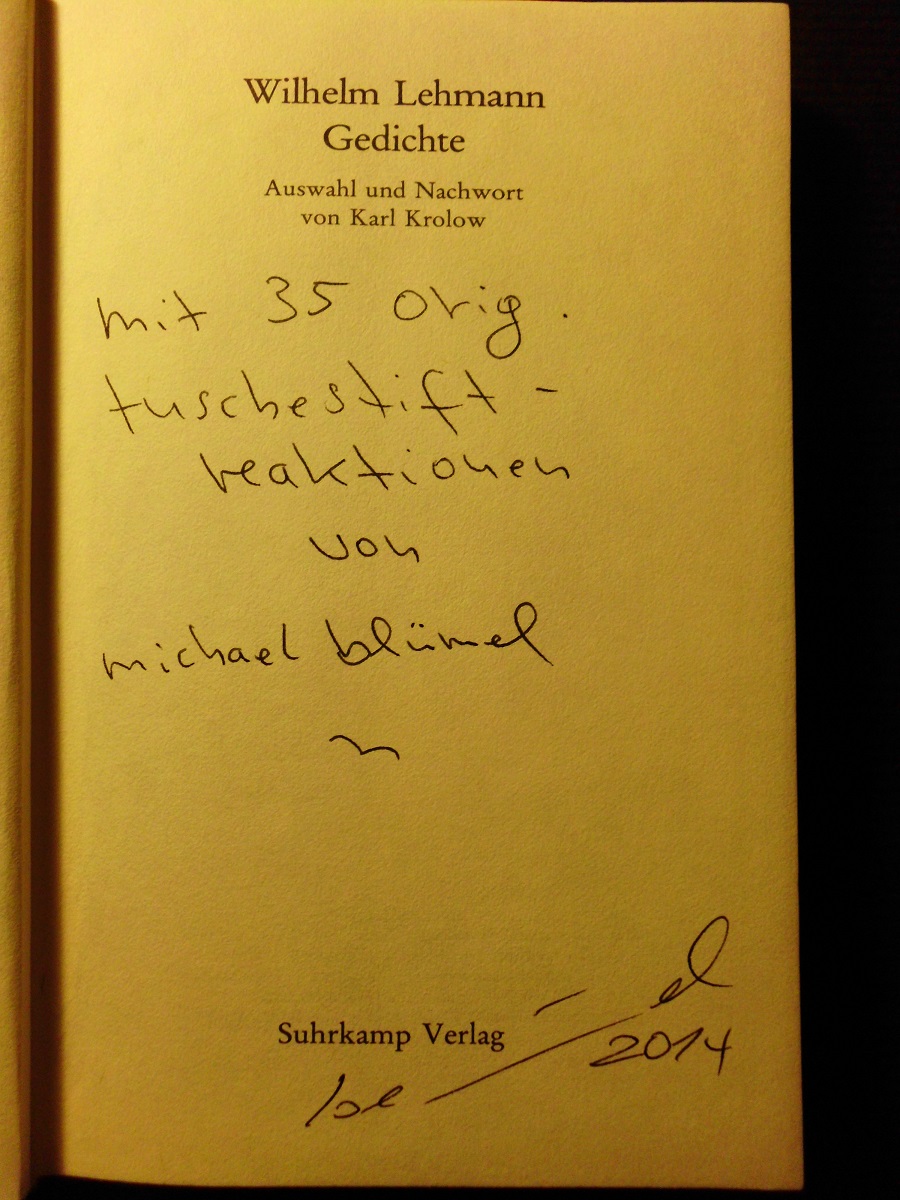 Wilhelm Lehmann
Gedichte
Auswahl und Nachwort
von Karl Krolow
mit 35 orig.
tuschestift-
reaktionen
von
michael blümel
Suhrkamp Verlag
2014